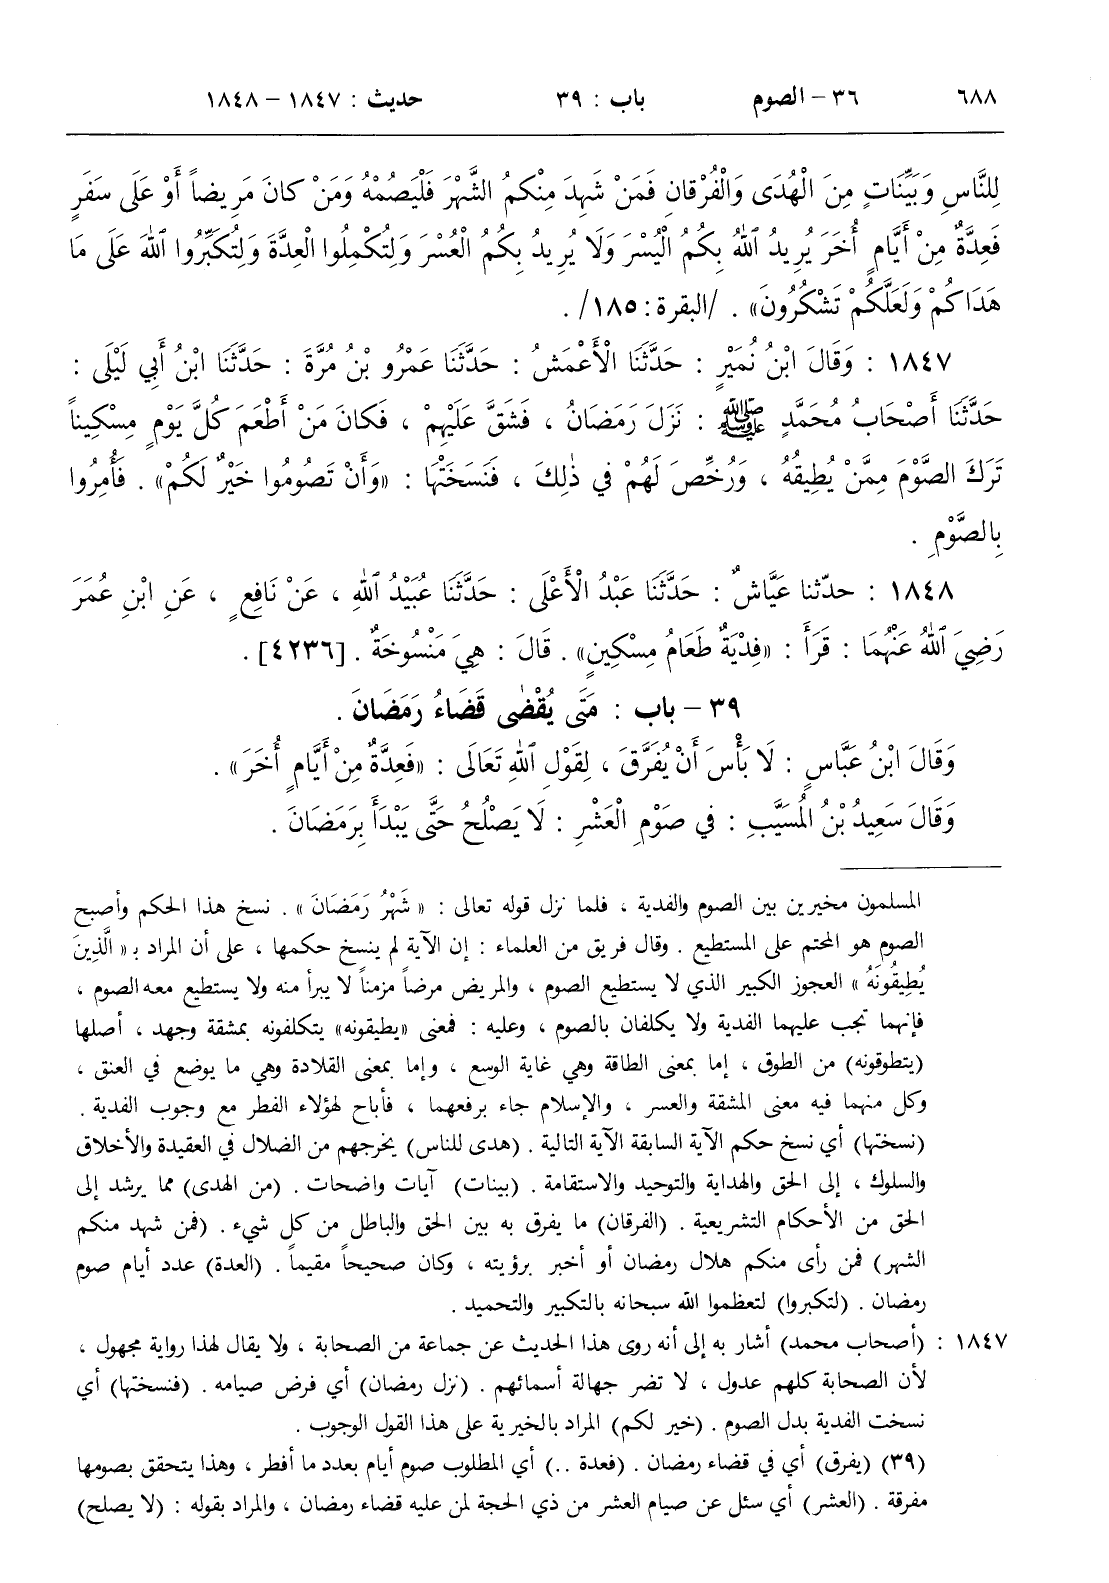 ٦٨٨ ٣٦ – الصوم باب : ٣٩ حديث : ١٨٤٧ – ١٨٤٨
لِلنَّاسِ وَبَيِّنَاتٍ مِنَ الْهُدَى وَالْفُرْقانِ فَمَنْ شَهِدَ مِنْكمُ الشَّهْرَ فَلْيَصُمْهُ وَمَنْ كانَ مَرِيضاً أَوْ عَلَى سَفَرٍ
فَعِدَّةٌ مِنْ أَيَّامٍ أُخَرَ يُرِيدُ اللهُ بِكُمُ الْيُسْرَ وَلَا يُرِيدُ بِكُمُ الْعُسْرَ وَلِتُكْمِلُوا الْعِدَّةَ وَلِتُكَبِّرُوا اللهَ عَلَى مَا
هَدَاكُمْ وَلَعَلَّكُمْ تَشْكُرُونَ» . /البقرة : ١٨٥/ .
١٨٤٧ : وَقَالَ ابْنُ نُمَيْرٍ : حَدَّثَنَا الْأَعْمَشُ : حَدَّثَنَا عَمْرُو بْنُ مُرَّةَ : حَدَّثَنَا ابْنُ أَبِي لَيْلَى :
حَدَّثَنَا أَصْحَابُ مُحَمَّدٍ ﷺ : نَزَلَ رَمَضَانُ ، فَشَقَّ عَلَيْهِمْ ، فَكانَ مَنْ أَطْعَمَ كُلَّ يَوْمٍ مِسْكِيناً
تَرَكَ الصَّوْمَ مِمَّنْ يُطِيقُهُ ، وَرُخِّصَ لَهُمْ فِي ذٰلِكَ ، فَنَسَخَتْهَا : «وَأَنْ تَصُومُوا خَيْرٌ لَكُمْ» . فَأُمِرُوا
بِالصَّوْمِ .
١٨٤٨ : حدّثنا عَيَّاشٌ : حَدَّثَنَا عَبْدُ الْأَعْلَى : حَدَّثَنَا عُبَيْدُ اللهِ ، عَنْ نَافِعٍ ، عَنِ ابْنِ عُمَرَ
رَضِيَ اللهُ عَنْهُمَا : قَرَأَ : «فِدْيَةٌ طَعَامُ مِسْكِينٍ» . قَالَ : هِيَ مَنْسُوخَةٌ . [٤٢٣٦] .
٣٩ – باب : مَتَى يُقْضٰى قَضَاءُ رَمَضَانَ .
وَقَالَ ابْنُ عَبَّاسٍ : لَا بَأْسَ أَنْ يُفَرَّقَ ، لِقَوْلِ اللهِ تَعَالَى : «فَعِدَّةٌ مِنْ أَيَّامٍ أُخَرَ» .
وَقَالَ سَعِيدُ بْنُ الْمُسَيَّبِ : فِي صَوْمِ الْعَشْرِ : لَا يَصْلُحُ حَتَّى يَبْدَأَ بِرَمَضَانَ .
المسلمون مخيرين بين الصوم والفدية ، فلما نزل قوله تعالى : « شَهْرُ رَمَضَانَ » . نسخ هذا الحكم وأصبح
الصوم هو المحتم على المستطيع . وقال فريق من العلماء : إن الآية لم ينسخ حكمها ، على أن المراد بـ « الَّذِينَ
يُطِيقُونَهُ » العجوز الكبير الذي لا يستطيع الصوم ، والمريض مرضاً مزمناً لا يبرأ منه ولا يستطيع معه الصوم ،
فإنهما تجب عليهما الفدية ولا يكلفان بالصوم ، وعليه : فمعنى «يطيقونه» يتكلفونه بمشقة وجهد ، أصلها
(يتطوقونه) من الطوق ، إما بمعنى الطاقة وهي غاية الوسع ، وإما بمعنى القلادة وهي ما يوضع في العنق ،
وكل منهما فيه معنى المشقة والعسر ، والإسلام جاء برفعهما ، فأباح لهؤلاء الفطر مع وجوب الفدية .
(نسختها) أي نسخ حكم الآية السابقة الآية التالية . (هدى للناس) يخرجهم من الضلال في العقيدة والأخلاق
والسلوك ، إلى الحق والهداية والتوحيد والاستقامة . (بينات) آيات واضحات . (من الهدى) مما يرشد إلى
الحق من الأحكام التشريعية . (الفرقان) ما يفرق به بين الحق والباطل من كل شيء . (فمن شهد منكم
الشهر) فمن رأى منكم هلال رمضان أو أخبر برؤيته ، وكان صحيحاً مقيماً . (العدة) عدد أيام صوم
رمضان . (لتكبروا) لتعظموا الله سبحانه بالتكبير والتحميد .
١٨٤٧ : (أصحاب محمد) أشار به إلى أنه روى هذا الحديث عن جماعة من الصحابة ، ولا يقال لهذا رواية مجهول ،
لأن الصحابة كلهم عدول ، لا تضر جهالة أسمائهم . (نزل رمضان) أي فرض صيامه . (فنسختها) أي
نسخت الفدية بدل الصوم . (خير لكم) المراد بالخيرية على هذا القول الوجوب .
(٣٩) (يفرق) أي في قضاء رمضان . (فعدة ..) أي المطلوب صوم أيام بعدد ما أفطر ، وهذا يتحقق بصومها
مفرقة . (العشر) أي سئل عن صيام العشر من ذي الحجة لمن عليه قضاء رمضان ، والمراد بقوله : (لا يصلح)